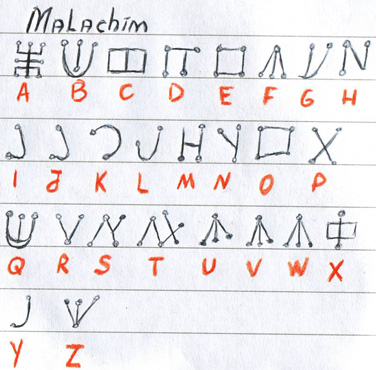 Malachim
A B C D E F G H
I J K L M N O P
Q R S T U V W X
Y Z